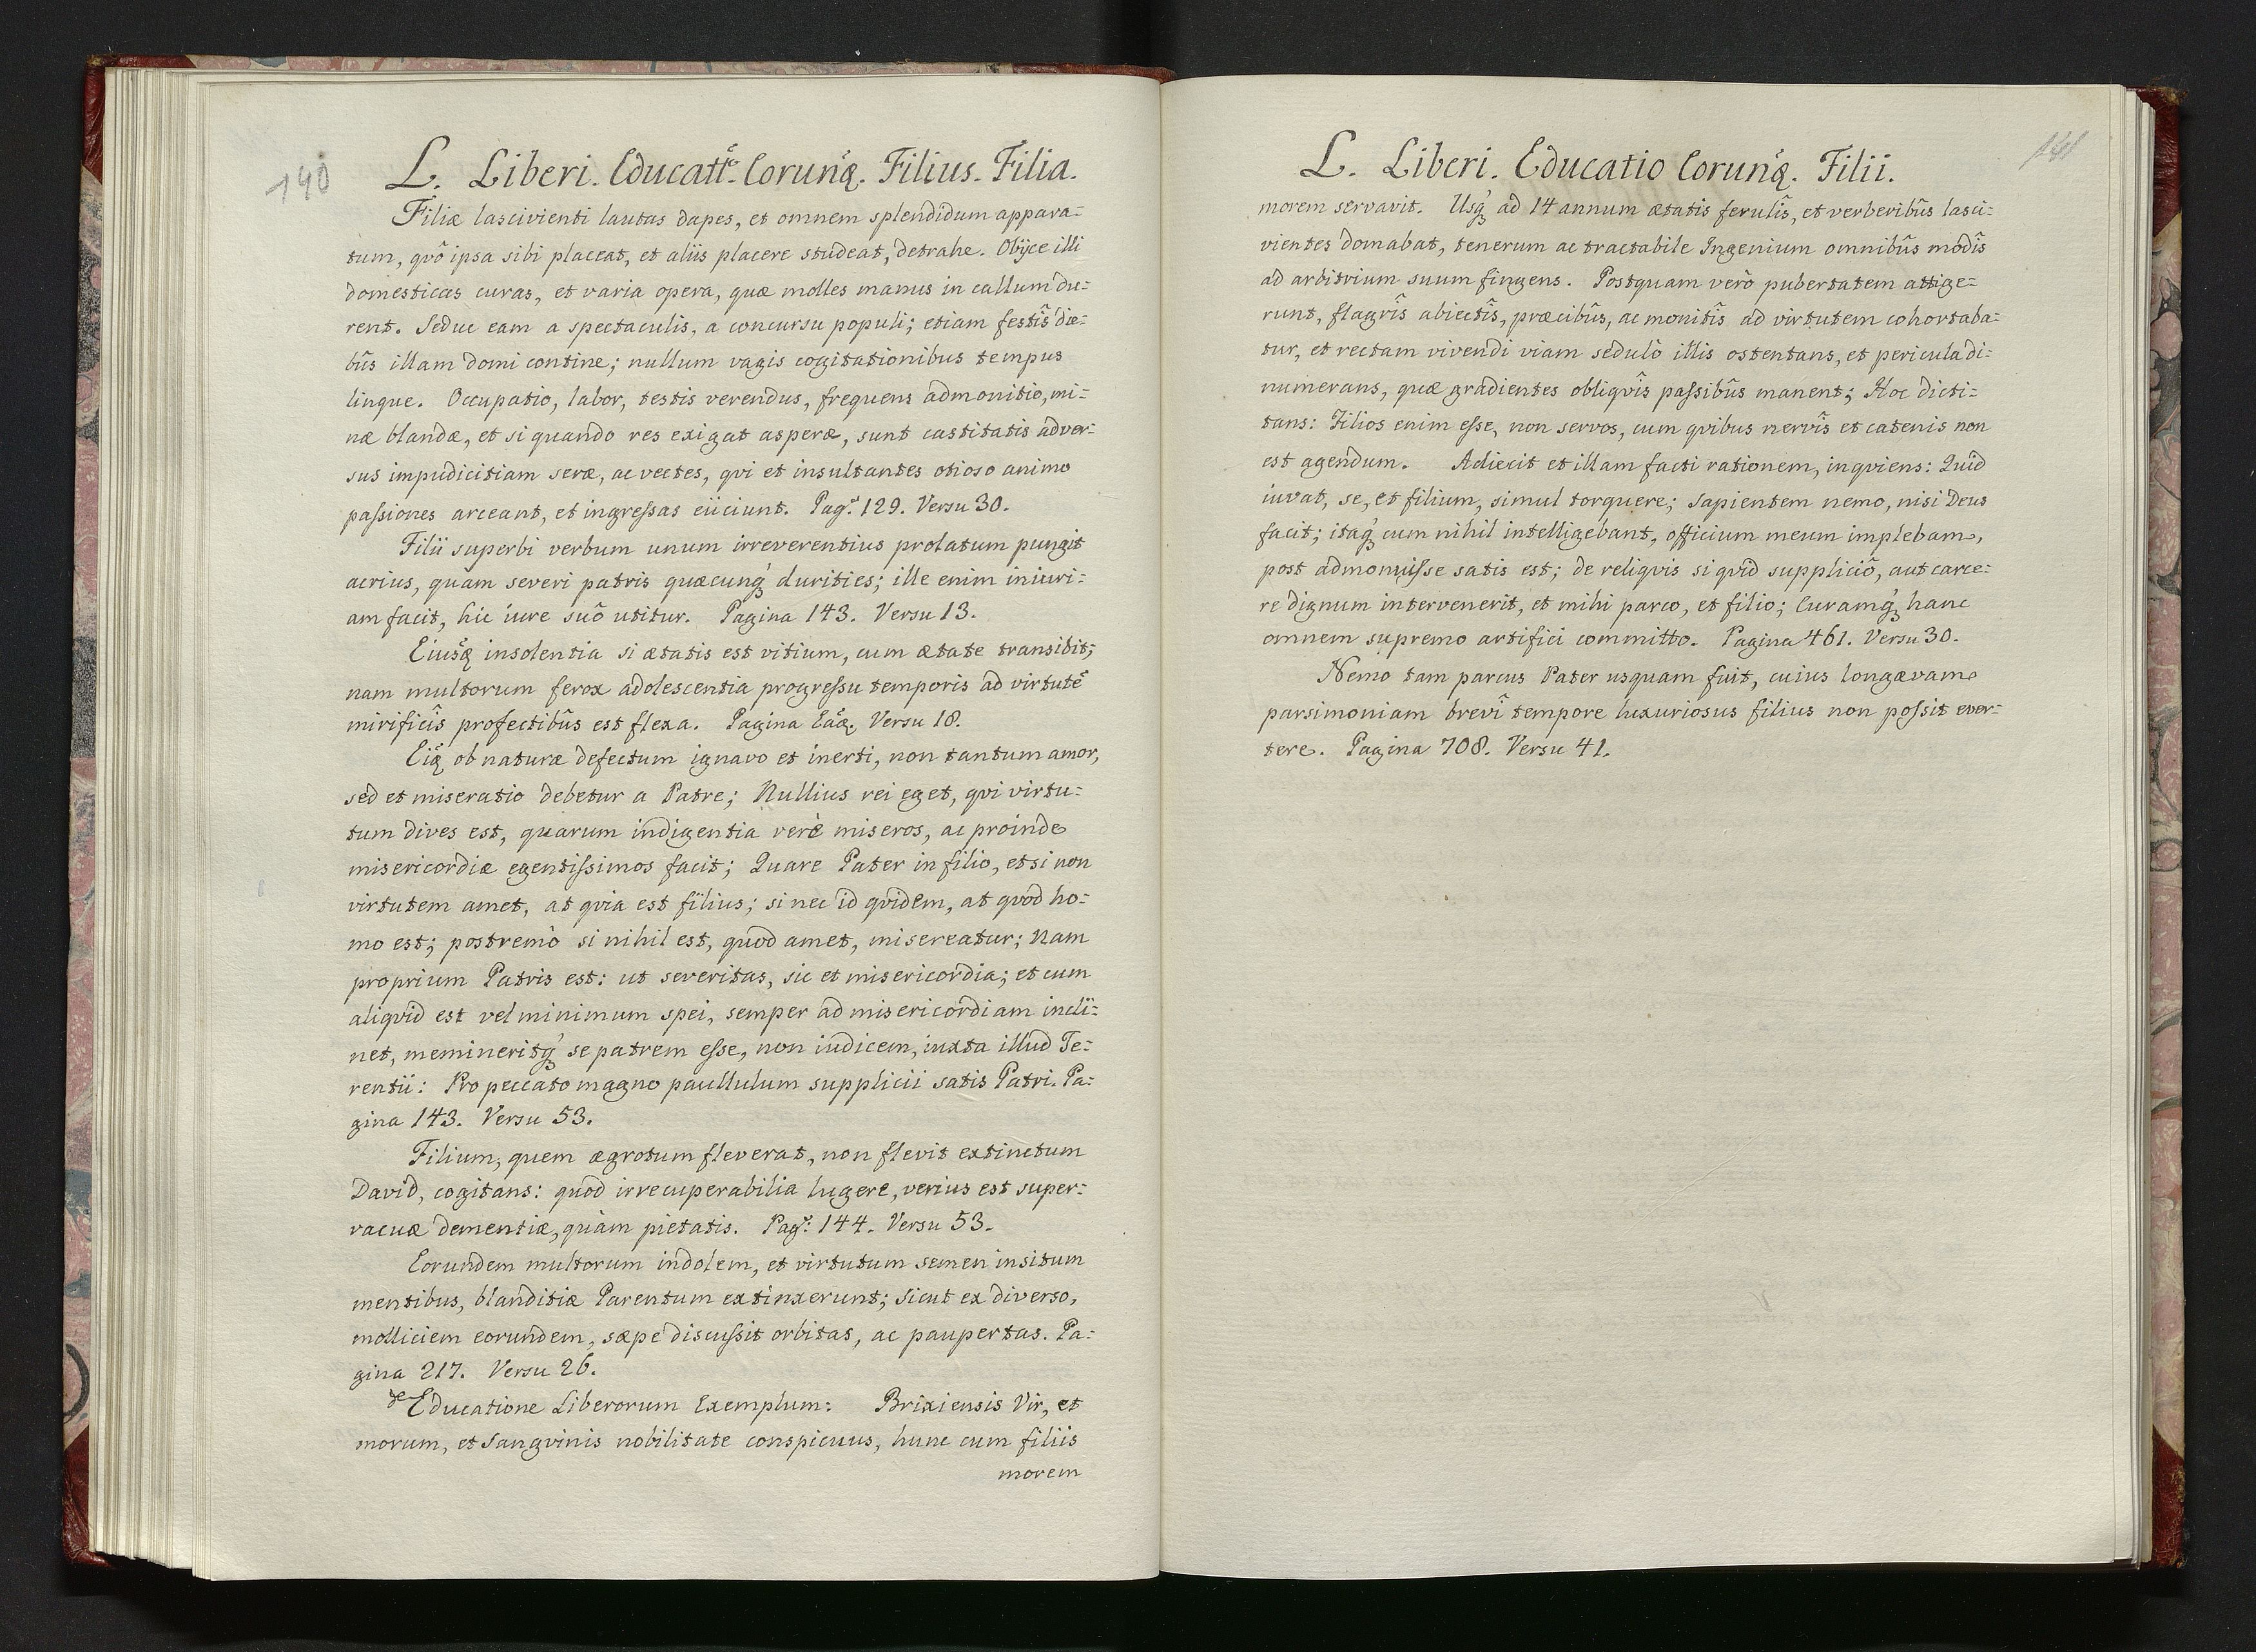 140
L. Liberi. Educatĩõ. Eorunđ. Filius. Filia.
Filiæ lascivienti lautas dapes, et omnem splendidum appara=
tum, qvô ipsa sibi placeat, et aliis placere studeat, detrahe. Obÿce illi
domesticas curas, et varia opera, quæ molles manus in callum du=
rent. Seduc eam a spectaculis, a concursu populi; etiam festîs die=
bûs illam domi contine; nullum vagis cogitationibus tempus
linque. Occupatio, labor, testis verendus, frequens admonitio, mi=
næ blandæ, et si quando res exigat asperæ, sunt castitatis adver=
sus impudicitiam seræ, ac vectes, qvi et insultantes otioso animo
paſsiones arceant, et ingreſsas eiiciunt. Pag.ª 129. Versu 30.
Filii superbi verbum unum irreverentius prolatum pungit
acrius, quàm severi patris quæcunq́ durities; ille enim iniuri=
am facit, hic iure suô utitur. Pagina 143. Versu 13.
Eiusđ insolentia si ætatis est vitium, cum ætate transibit;
nam multorum ferox adolescentia progreſsu temporis ad virtutẽ
mirificîs profectibûs est flexa. Pagina Eađ. Versu 18.
Eiđ ob naturæ defectum ignavo et inerti, non tantum amor,
sed et miseratio debetur a Patre; Nullius rei eget, qvi virtu=
tum dives est, quarum indigentia verè miseros, ac proinde
misericordiæ egentiſsimos facit; Quare Pater in filio, etsi non
virtutem amet, at qvia est filius; si nec id qvidem, at qvod ho=
mo est; postremò si nihil est, quod amet, misereatur; Nam
proprium Patris est: ut severitas, sic et misericordia; et cum
aliqvid est vel minimum spei, semper ad misericordiam incli=
net, memineritq́ se patrem eſse, non iudicem, iuxta illud Te=
rentii: Pro peccato magno paullulum supplicii satis Patri. Pa=
gina 143. Versu 53.
Filium, quem ægrotum fleverat, non flevit extinctum
David, cogitans: quod irrecuperabilia lugere, verius est super=
vacuæ dementiæ, quàm pietatis. Pag.ª 144. Versu 53.
Eorundem multorum indolem, et virtutum semen insitum
mentibus, blanditiæ Parentum extinxerunt; sicut ex diverso,
molliciem eorundem, sæpe discuſsit orbitas, ac paupertas. Pa=
gina 217. Versu 26.
de Educatione Liberorum Exemplum: Brixiensis Vir, et
morum, et Sangvinis nobilitate conspicuus, hunc cum filiis
morem
141
L. Liberi. Educatio Eorunđ. Filii.
morem servavit. Usq́ ad 14 annum ætatis ferulîs, et verberibûs lasci=
vientes domabat, tenerum ac tractabile Ingenium omnibûs modîs
ad arbitrium suum fingens. Postquam verò pubertatem attige=
runt, flagrîs abiectîs, præcibûs, ac monitîs ad virtutem cohortaba=
tur, et rectam vivendi viam sedulò illis ostentans, et pericula di=
numerans, quæ gradientes obliqvîs paſsibûs manent; Hoc dicti=
tans: Filios enim eſse, non servos, cum qvibus nervîs et catenis non
est agendum. Adiecit et illam facti rationem, inqviens: Quid
iuvat, se, et filium, simul torquere; sapientem nemo, nisi Deus
facit; itaq́ cum nihil intelligebant, officium meum implebam,
post admonuiſse satis est; de reliqvis si qvid suppliciô, aut carce=
re dignum intervenerit, et mihi parco, et filio; Curamq́ hanc
omnem supremo artifici committo. Pagina 461. Versu 30.
Nemo tam parcus Pater usquam fuit, cuius longævam
parsimoniam brevî tempore luxuriosus filius non poſsit ever=
tere. Pagina 708. Versu 41.